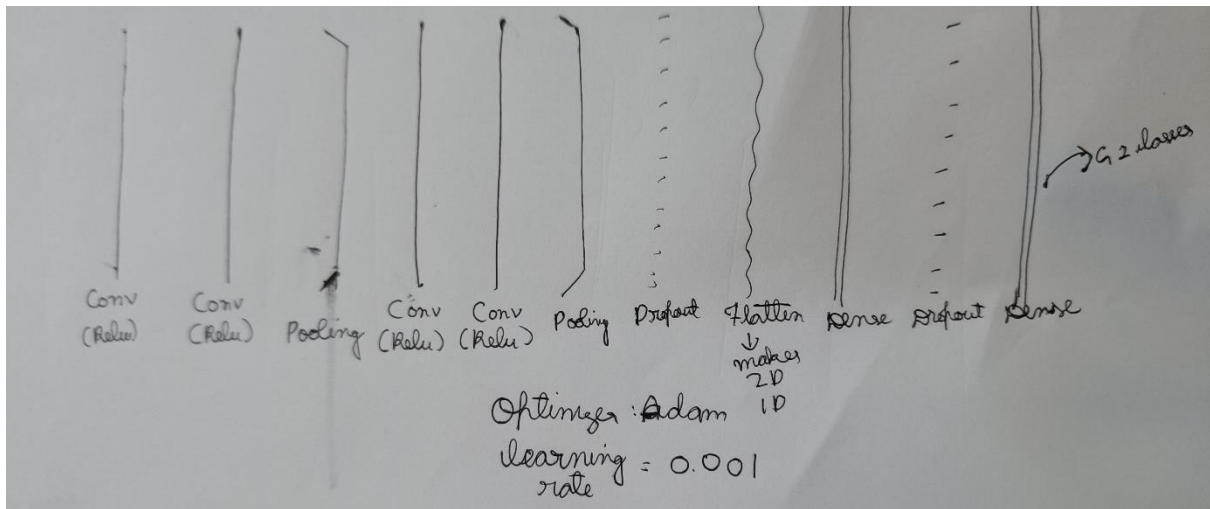 Conv
(Relu)
Conv
(Relu)
Pooling
Conv
(Relu)
Conv
(Relu)
Pooling
Dropout
Flatten
↓
makes
2D
1D
Dense
Dropout
Dense
2 classes
Optimizer : Adam
learning = 0.001
rate